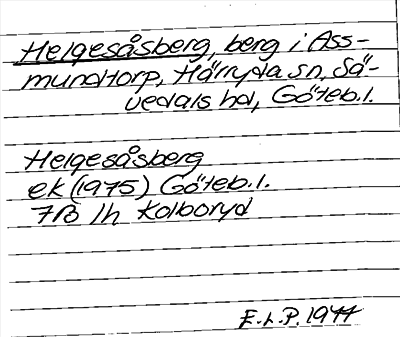 Helgesåsberg, berg i Ass-
mundtorp, Härryda sn, Sä-
vedals hd, Göteb.l.
Helgesåsberg
ek (1975) Göteb.l.
7B 1h Kolboryd
E.L.P. 1977